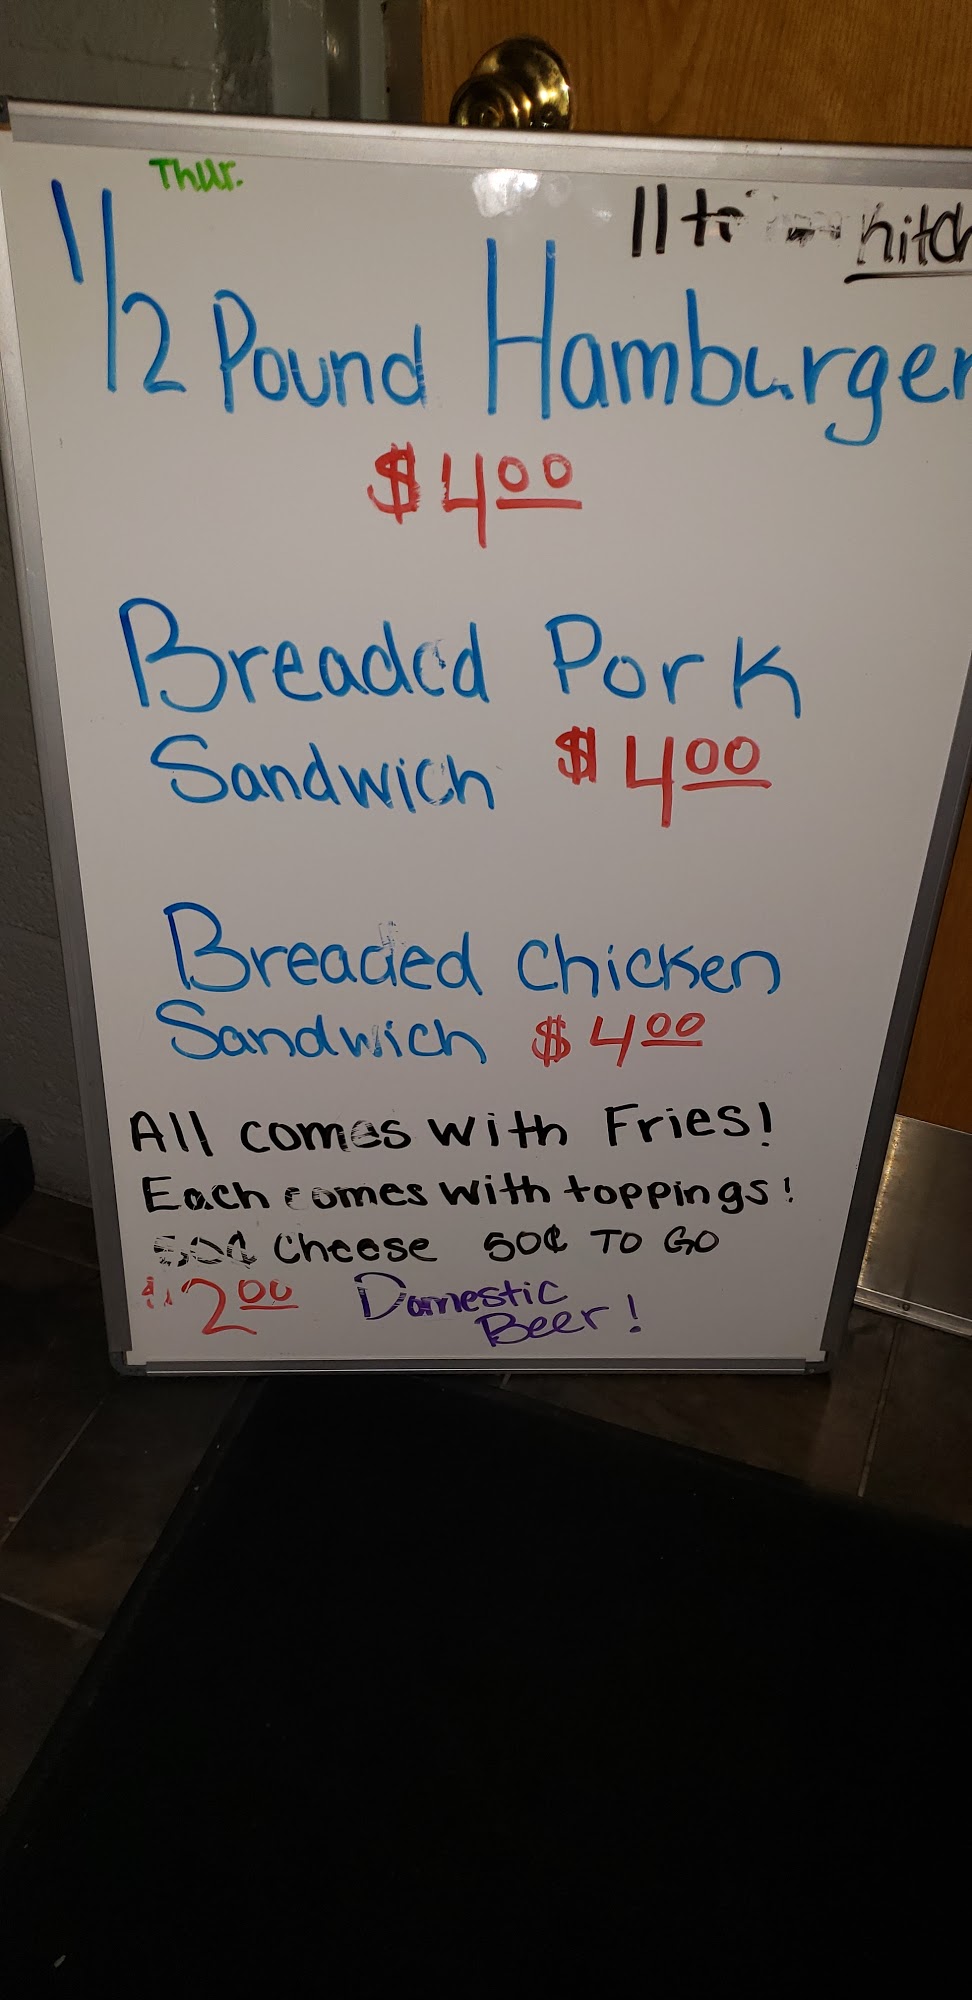 Thur.
11 to
1/2 Pound Hamburger
$4.00
Breaded Pork
Sandwich $4.00
Breaded Chicken
Sandwich $4.00
All comes with Fries!
Each comes with toppings!
50¢ Cheese 50¢ TO GO
$2.00 Domestic
Beer!